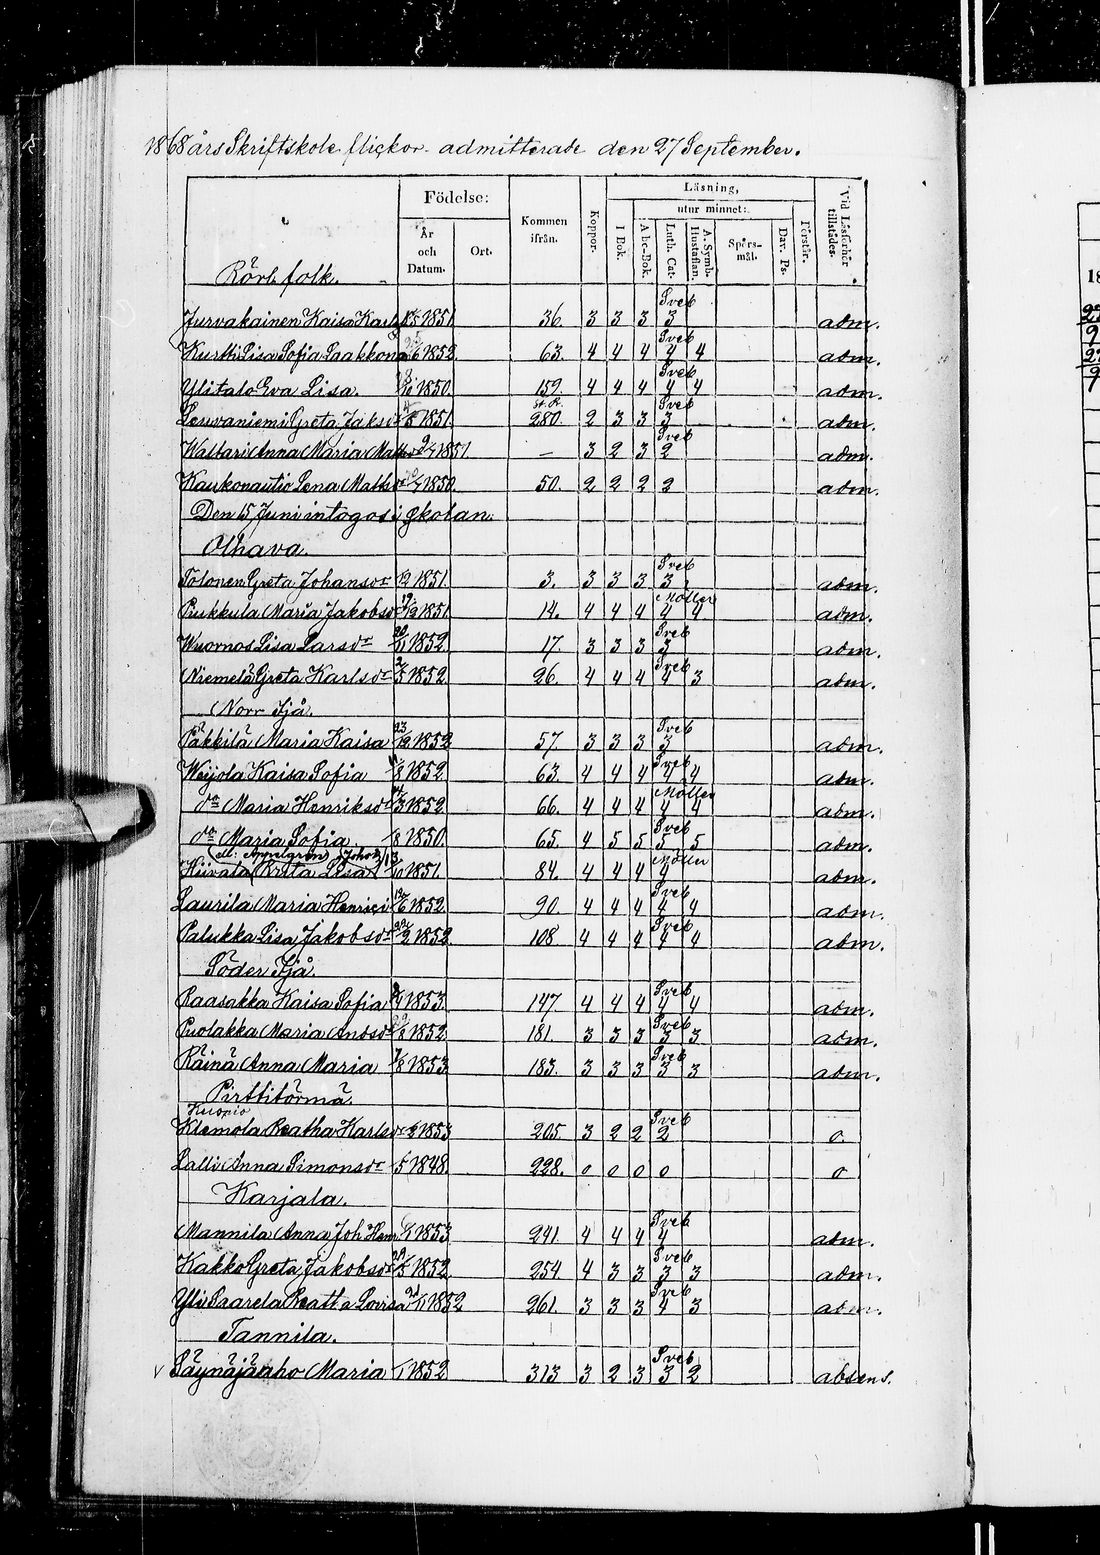 1868 års Skriftskole flickor admitterade den 27 September.
Födelse: Kommen ifrån. Koppor. Läsning, Vid Läsförhör tillstädes.
utur minnet:
År och Datum. Ort. I Bok. Abc-Bok. Luth. Cat. A. Symb. Hustaflan. Spörsmål. Dav. Ps. Förstår.
Rörl. folk.
Sveb
Jurvakainen Kaisa Karlsd 1851 36. 3 3 3 3 adm.
Sveb
Kurtti Lisa Sofia Laakkon 6 1852 63. 4 4 4 4 4 adm.
Sveb
Ylitalo Eva Lisa. 1850. 159. 4 4 4 4 4 adm.
Sveb
Greta Jaksdr 1851. 280. 2 3 3 3 adm.
Sveb
Waltari Anna Maria 1851 – 3 2 3 2 adm.
Kaukonautio Lena Mattsdr 1850. 50. 2 2 2 2 adm.
Den 15 Juni intogos i skolan.
Olhava.
Sveb
Tolonen Greta Johansdr 12 1851. 3. 3 3 3 3 adm.
Möller
Pukkula Maria Jakobsdr 19/12 1851. 14. 4 4 4 4 4 adm.
Sveb
Wuornos Lisa Larsdr 20/11 1852. 17. 3 3 3 3 adm.
Sveb
Niemelä Greta Karlsdr 2/5 1852. 26. 4 4 4 4 3 adm.
Norr Ijå.
Sveb
Päkkilä Maria Kaisa 23/12 1852 57. 3 3 3 3 adm.
Sveb
Weijola Kaisa Sofia 1852. 63. 4 4 4 4 4 adm.
Möller
do Maria Henriksdr 3 1852 66. 4 4 4 4 4 adm.
Sveb
do Maria Sofia 8 1850. 65. 4 5 5 5 5 adm.
ell: Appelgren Johsdr Möller
Hiivala Greta Lisa 13/10 1851. 84. 4 4 4 4 adm.
Sveb
Laurila Maria Henrici 12/6 1852. 90. 4 4 4 4 4 adm.
Sveb
Palukka Lisa Jakobsdr 2 1852 108 4 4 4 4 4 adm.
Söder Ijå.
Sveb
Raasakka Kaisa Sofia 4 1853. 147 4 4 4 4 4 adm.
Sveb
Puolakka Maria Andsdr 8 1852 181. 3 3 3 3 3 adm.
Sveb
Räinä Anna Maria 7/8 1853 183. 3 3 3 3 3 adm.
Pirttitörmä.
Kuopio Sveb
Klemola Beatha Karlsdr 1853 205. 3 2 2 2 0.
Lalli Anna Simonsdr 5 1848. 228. 0 0 0 0 0
Karjala.
Sveb
Mannila Anna Joh Henr 1853 241. 4 4 4 4 adm.
Sveb
Kakko Greta Jakobsdr 29/5 1852 254 4 3 3 3 3 adm.
Sveb
Yli Saarela Beatta Lovisa 1852 261. 3 3 3 4 3 adm.
Tannila.
Sveb
v Säynäjäaho Maria 1852 313 3 2 3 3 2 absens.